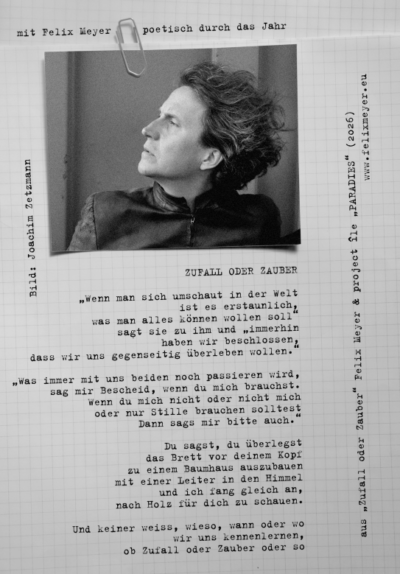 mit Felix Meyer poetisch durch das Jahr
Bild: Joachim Zetzmann
ZUFALL ODER ZAUBER
„Wenn man sich umschaut in der Welt
ist es erstaunlich,
was man alles können wollen soll"
sagt sie zu ihm und „immerhin
haben wir beschlossen,
dass wir uns gegenseitig überleben wollen."
„Was immer mit uns beiden noch passieren wird,
sag mir Bescheid, wenn du mich brauchst.
Wenn du mich nicht oder nicht mich
oder nur Stille brauchen solltest
Dann sags mir bitte auch."
Du sagst, du überlegst
das Brett vor deinem Kopf
zu einem Baumhaus auszubauen
mit einer Leiter in den Himmel
und ich fang gleich an,
nach Holz für dich zu schauen.
Und keiner weiss, wieso, wann oder wo
wir uns kennenlernen,
ob Zufall oder Zauber oder so
aus „Zufall oder Zauber" Felix Meyer & project île „PARADIES" (2026)
www.felixmeyer.eu